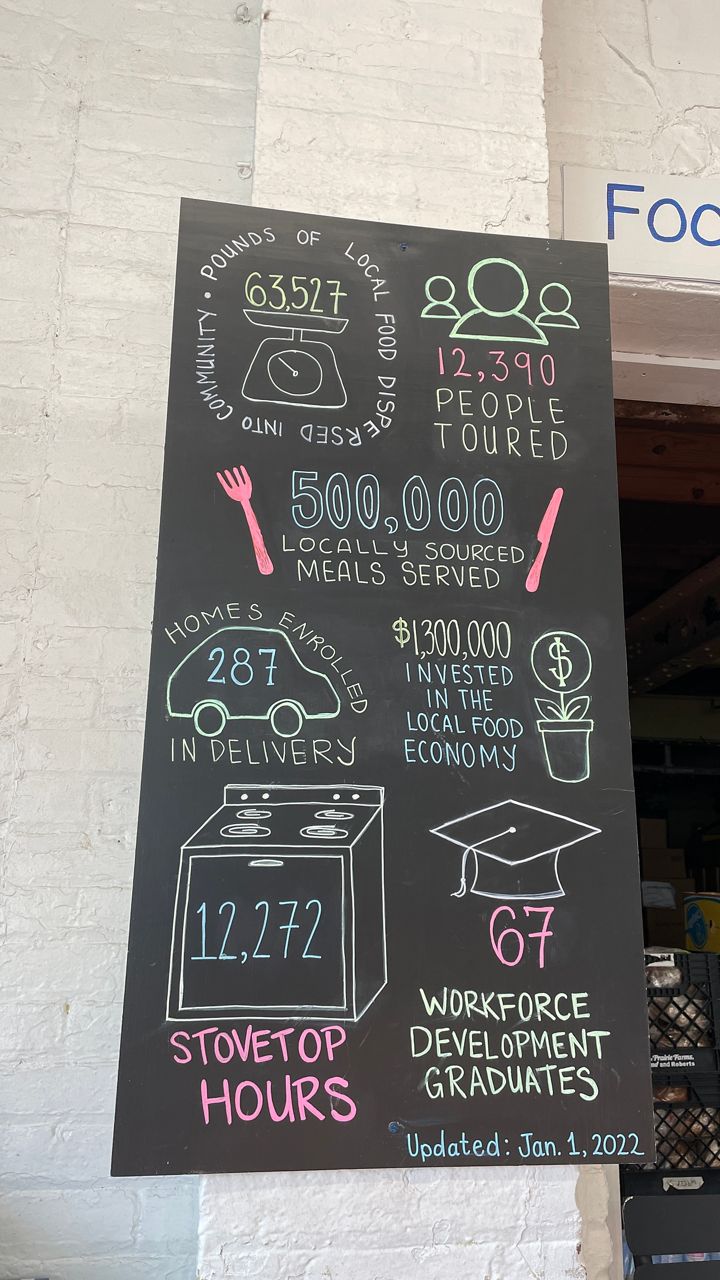 POUNDS OF LOCAL FOOD DISPERSED INTO COMMUNITY •
63,527
12,390
PEOPLE
TOURED
500,000
LOCALLY SOURCED
MEALS SERVED
HOMES ENROLLED
287
IN DELIVERY
$1,300,000
INVESTED
IN THE
LOCAL FOOD
ECONOMY
$
12,272
STOVETOP
HOURS
67
WORKFORCE
DEVELOPMENT
GRADUATES
Updated: Jan. 1, 2022
Foo
Prairie Farms.
and Roberts